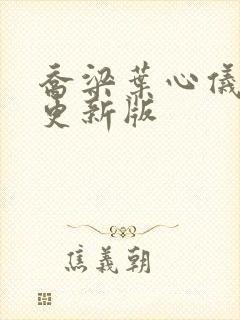 喬梁葉心儀
更新版
焦義朝